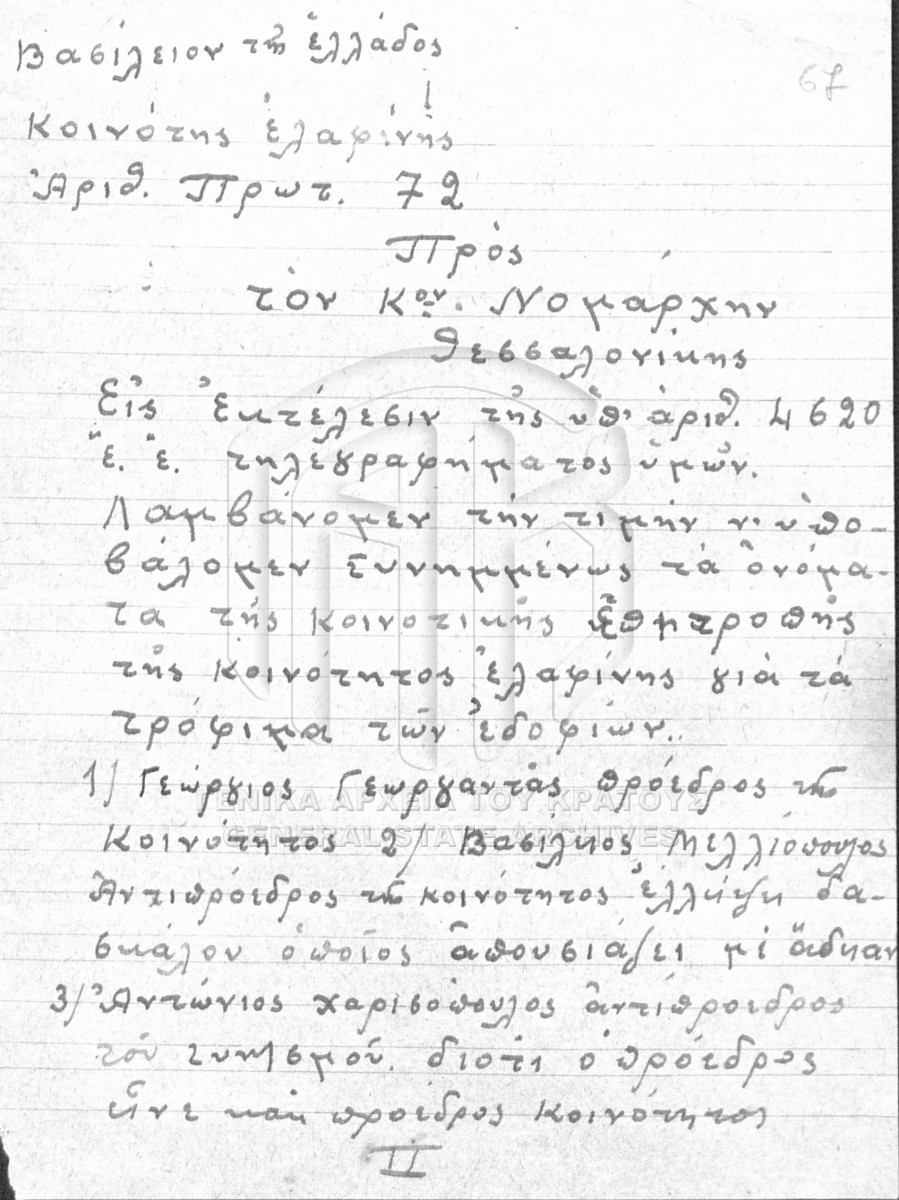 Βασίλειον τῆς ἑλλάδος
67
Κοινότης ἐλαφίνής
Ἀριθ. Πρωτ. 72
Πρὸς
τὸν Κον. Νομάρχην
Θεσσαλονίκης
Εἰς ἐκτέλεσιν τῆς ὑπ' ἀριθ. 4620
ἔ. ἔ. τηλεγραφήματος ὑμῶν.
Λαμβάνομεν τὴν τιμὴν ν' ὑπο-
βάλομεν συνημμένως τὰ ὀνόμα-
τα τῆς κοινοτικῆς ἐπιτροπῆς
τῆς κοινότητος ἐλαφίνης γιὰ τὰ
τρόφιμα τῶν ἐδοφίων.
1) Γεώργιος Γεωργαντᾶς πρόεδρος τῆς
ΓΕΝΙΚΑ ΑΡΧΕΙΑ ΤΟΥ ΚΡΑΤΟΥΣ
Κοινότητος 2) Βασίλιος Μελλιόπουλος
GENERAL STATE ARCHIVES
Ἀντιπρόεδρος τῆς κοινότητος ἐλλήψη δα-
σκάλου ὁποῖος ἀπουσιάζει μὲ ἄδιαν
3) Ἀντώνιος χαρισόπουλος ἀντιπροεδρος
τοῦ συν/σμοῦ. διοτὶ ὁ πρόεδρος
εἶνε καὶ πρόεδρος κοινότητος
II